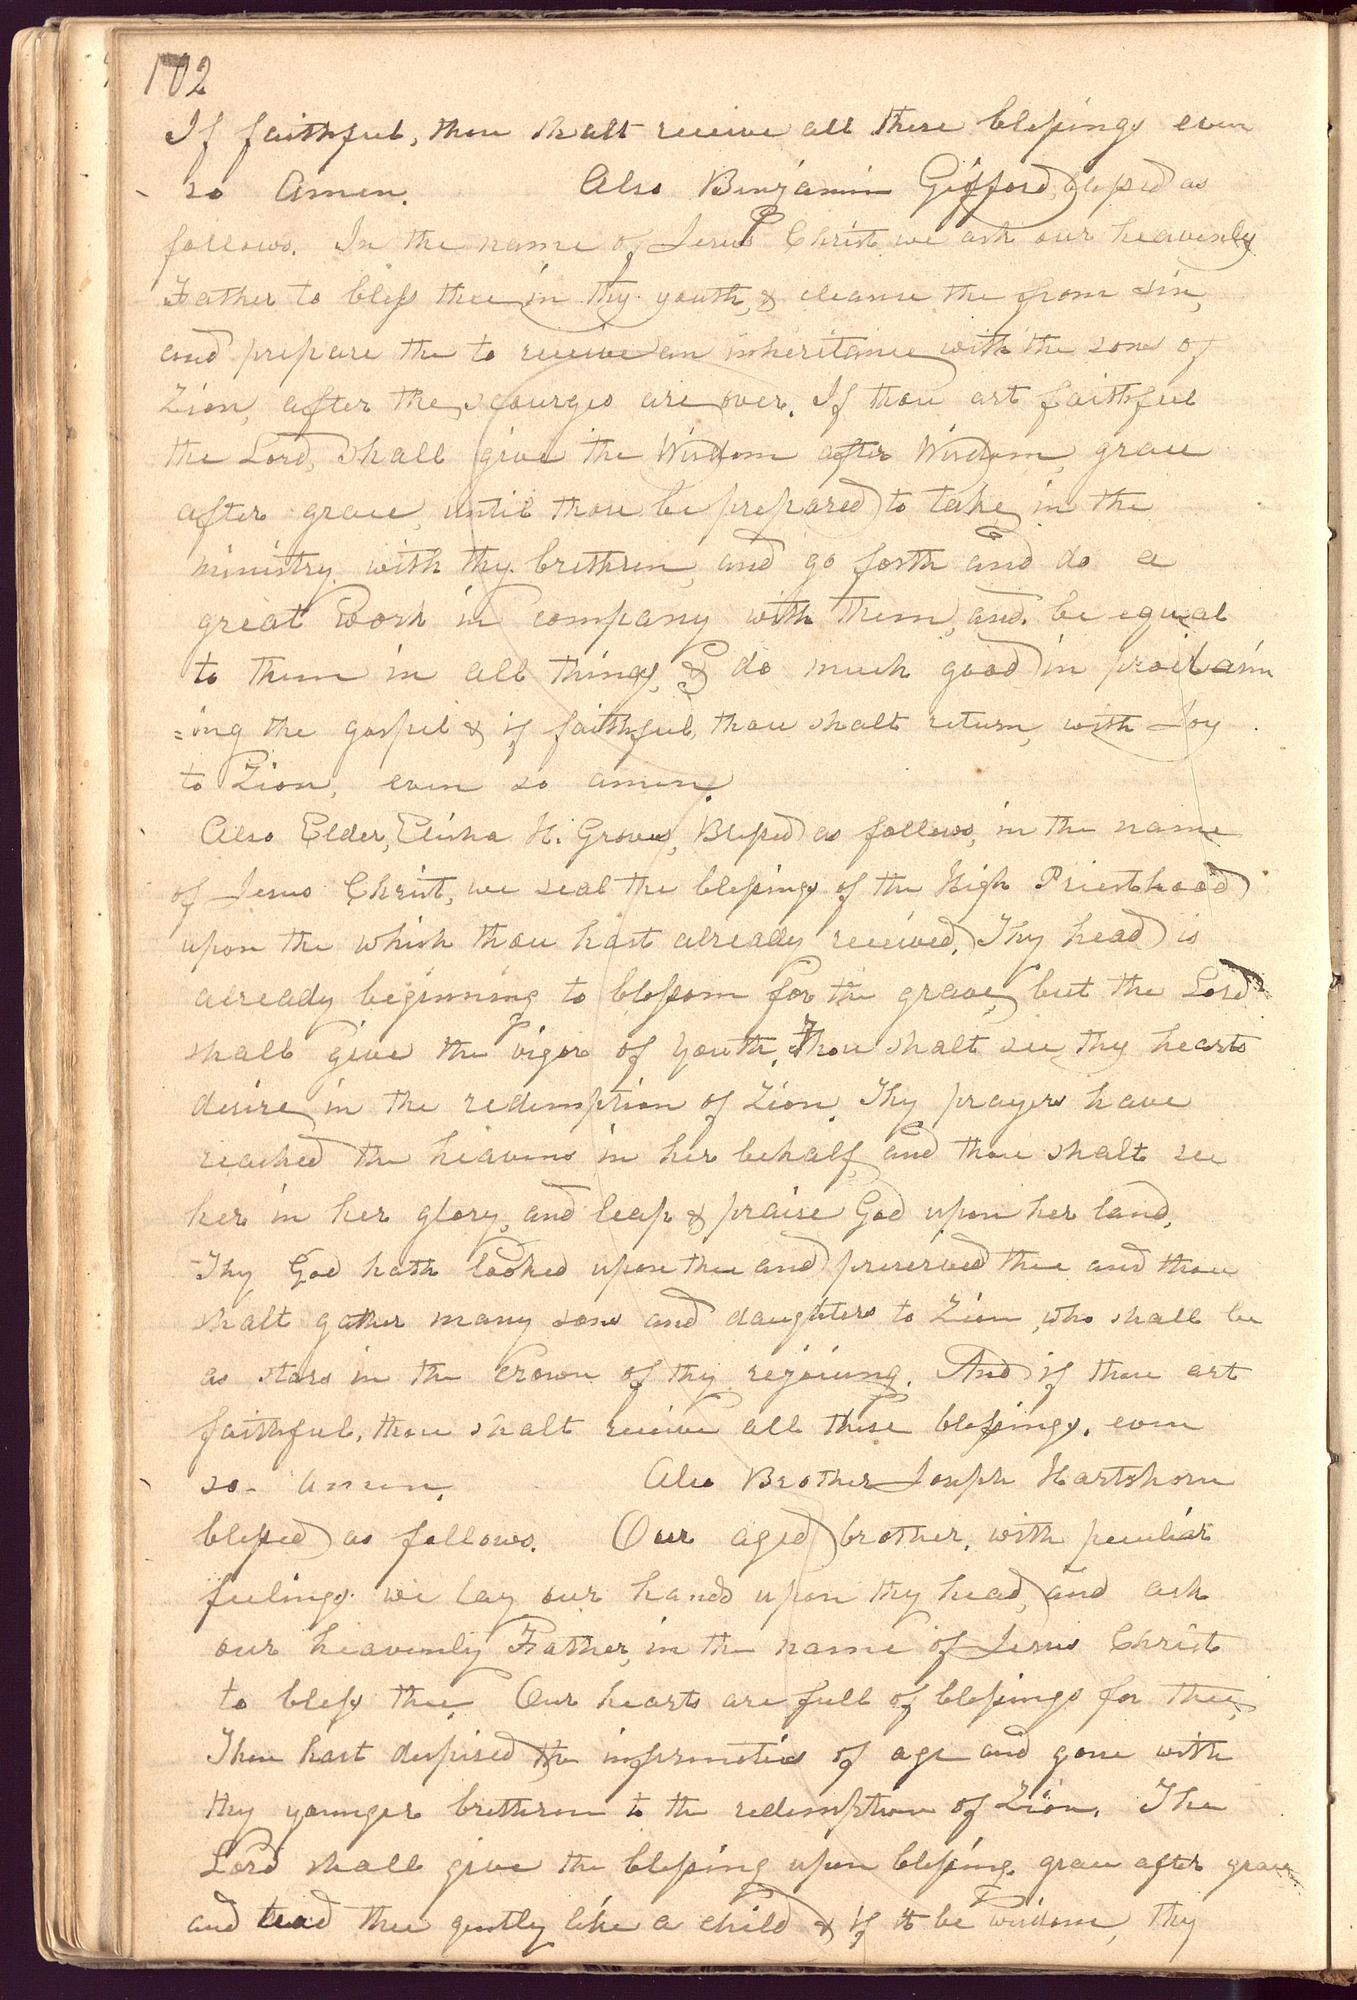 102
If faithful, thou shalt receive all these blessings even
so Amen. Also Benjamin Gifford, blessed as
follows. In the name of Jesus Christ we ask our heavenly
Father to bless thee in thy youth, & cleanse the from sin,
and prepare the to receive an inheritance with the sons of
Zion, after the scourges are over. If thou art faithful
the Lord, shall give the Wisdom after Wisdom, grace
after grace, until thou be prepared to take in the
ministry with thy brethren, and go forth and do a
great work in company with them, and be equal
to them in all things, & do much good in proclaim
=ing the gospel & if faithful, thou shalt return, with Joy
to Zion, even so amen.
Also Elder, Elisha H. Groves, Blessed as follows, in the name
of Jesus Christ, we seal the blessings of the High Priesthood
upon the which thou hast already received. Thy head is
already beginning to blossom for the grave, but the Lord
shall give the vigor of youth. Thou shalt see thy hearts
desire in the redemption of Zion. Thy prayers have
reached the heavens in her behalf, and thou shalt see
her in her glory, and leap & praise God upon her land.
Thy God hath looked upon thee and preserved thee and thou
shalt gather many sons and daughters to Zion, who shall be
as stars in the crown of thy rejoicing. And if thou art
faithful, thou shalt receive all these blessings. even
so. amen. Also Brother Joseph Hartshorn
blessed as follows. Our aged brother, with peculiar
feelings we lay our hands upon thy head, and ask
our heavenly Father, in the name of Jesus Christ
to bless thee. Our hearts are full of blessings for thee,
Thou hast despised the infirmities of age and gone with
thy younger brethren to the redemption of Zion. The
Lord shall give the blessing upon blessing. grace after grace
and lead thee gently like a child & if it be wisdom, thy